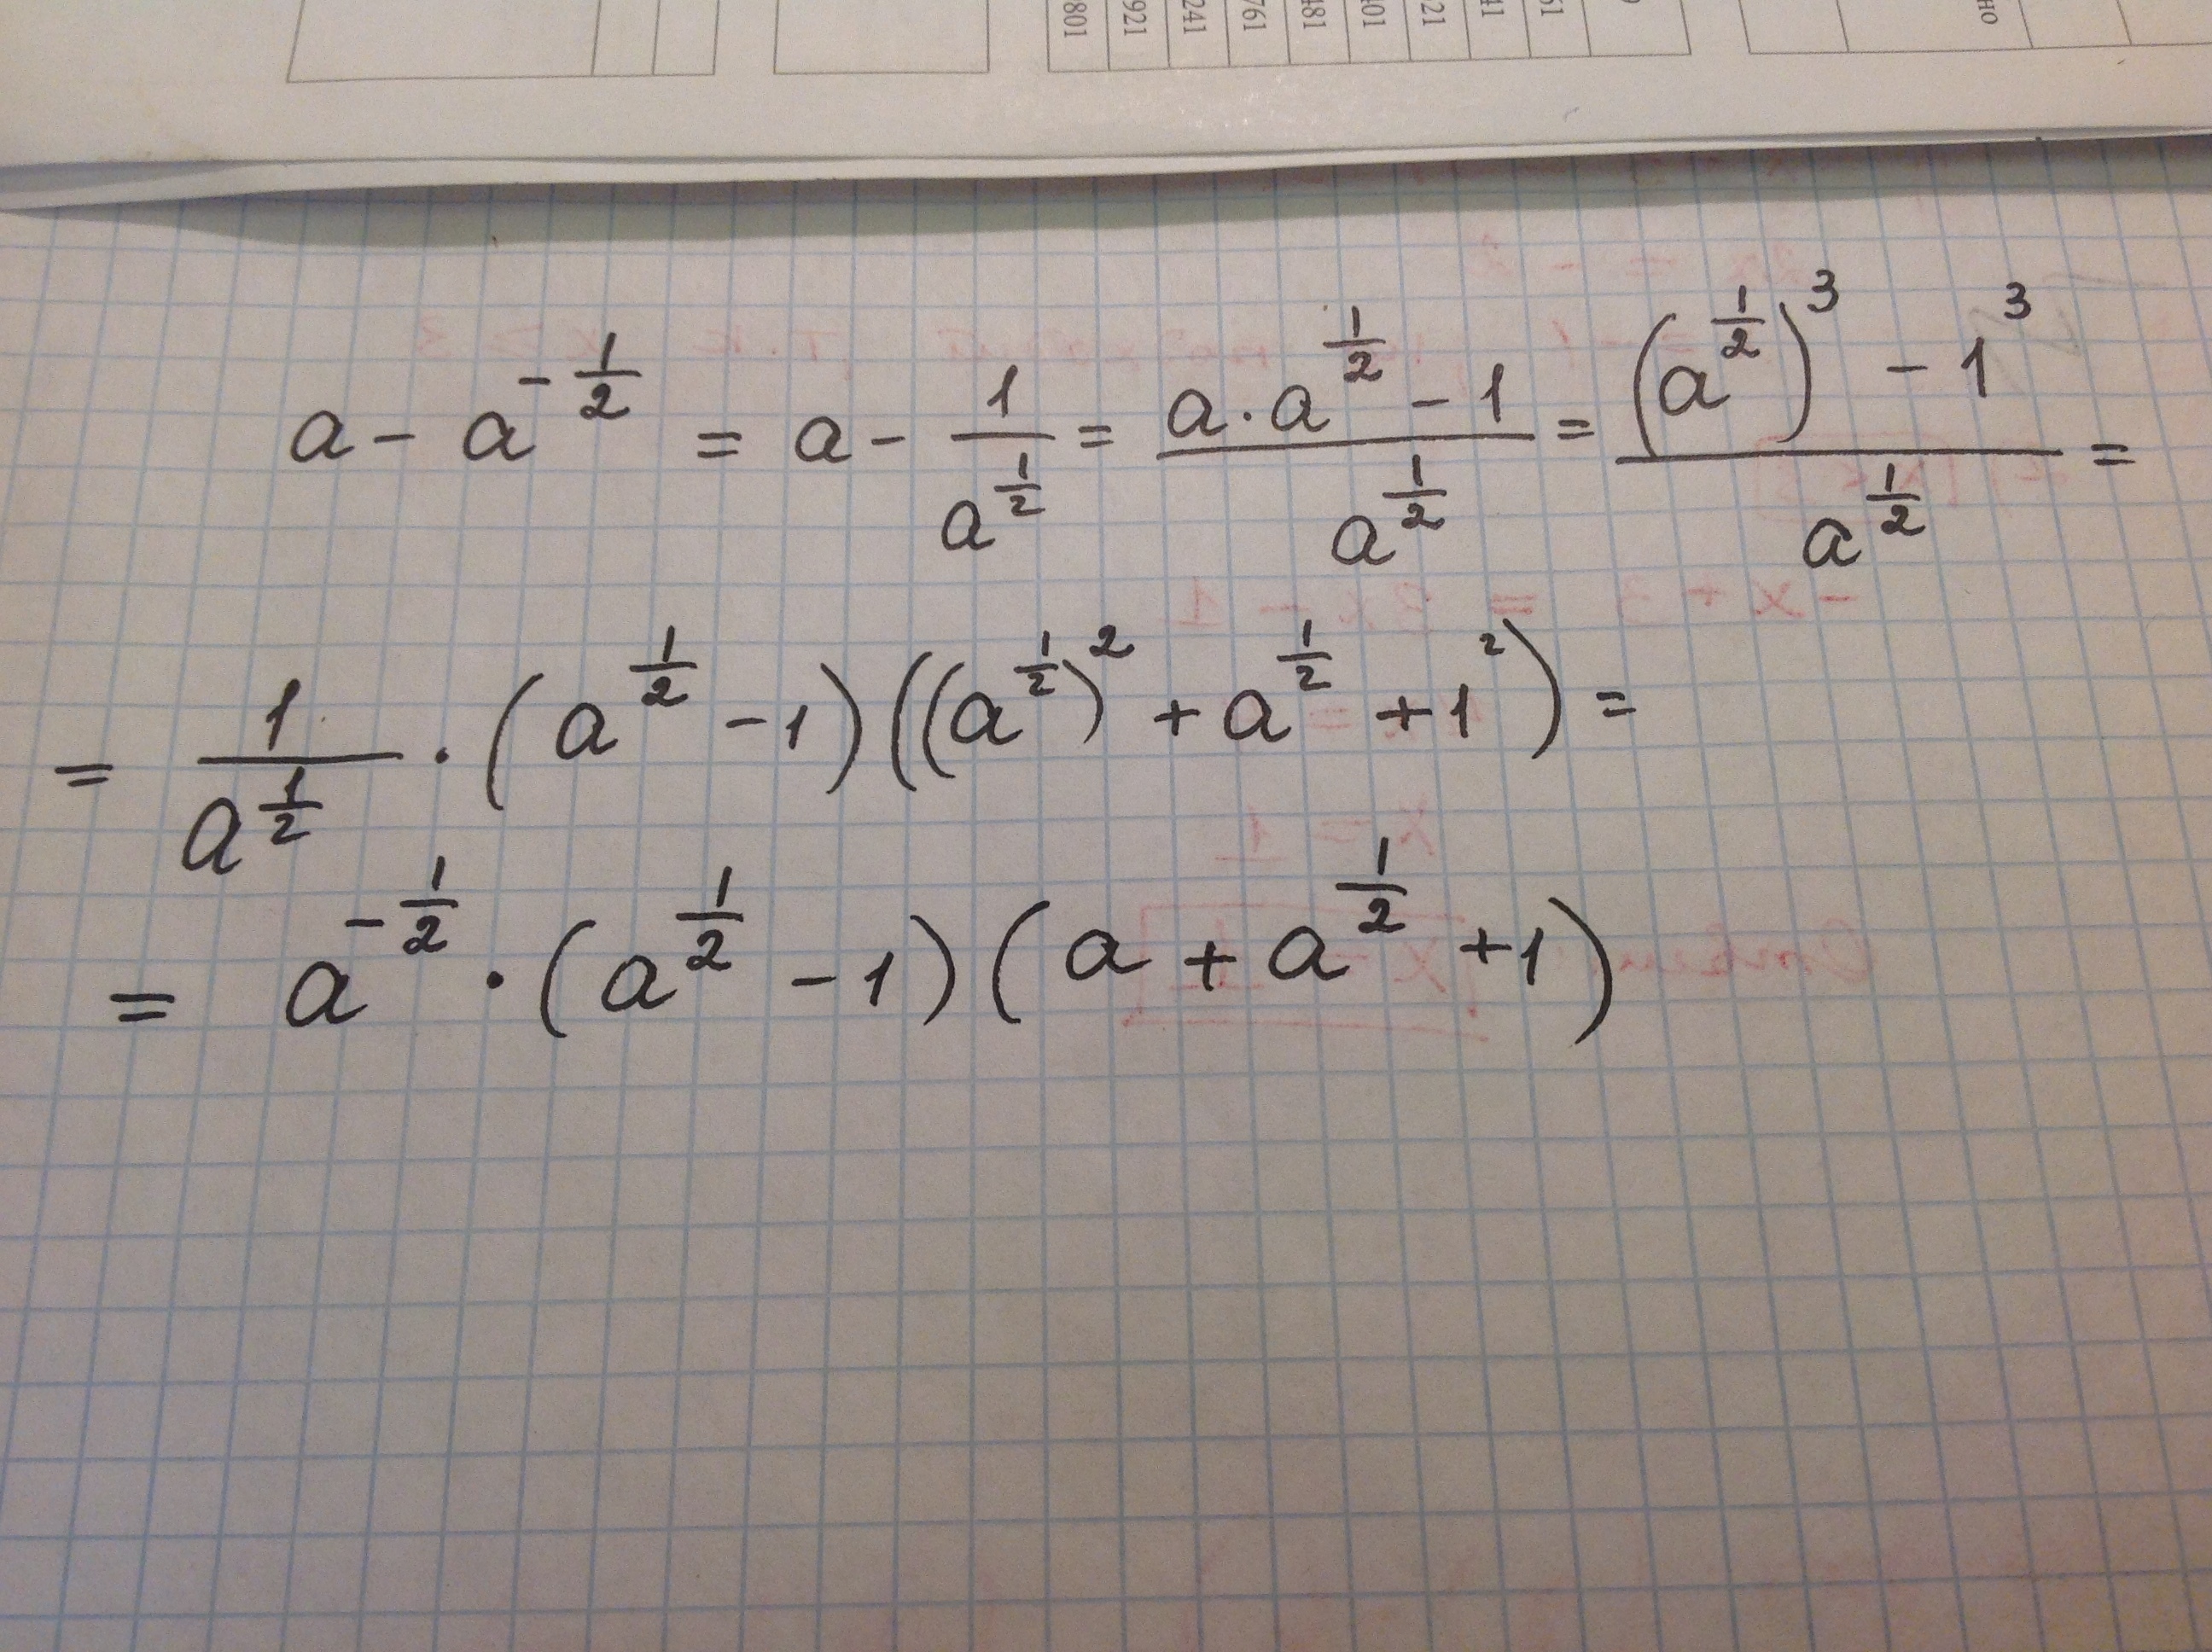 801 921 241 761 481 401 21 41 61 9 но
a - a^{-\frac{1}{2}} = a - \frac{1}{a^{\frac{1}{2}}} = \frac{a \cdot a^{\frac{1}{2}} - 1}{a^{\frac{1}{2}}} = \frac{(a^{\frac{1}{2}})^3 - 1^3}{a^{\frac{1}{2}}} =
= \frac{1}{a^{\frac{1}{2}}} \cdot (a^{\frac{1}{2}} - 1)((a^{\frac{1}{2}})^2 + a^{\frac{1}{2}} + 1^2) =
= a^{-\frac{1}{2}} \cdot (a^{\frac{1}{2}} - 1)(a + a^{\frac{1}{2}} + 1)